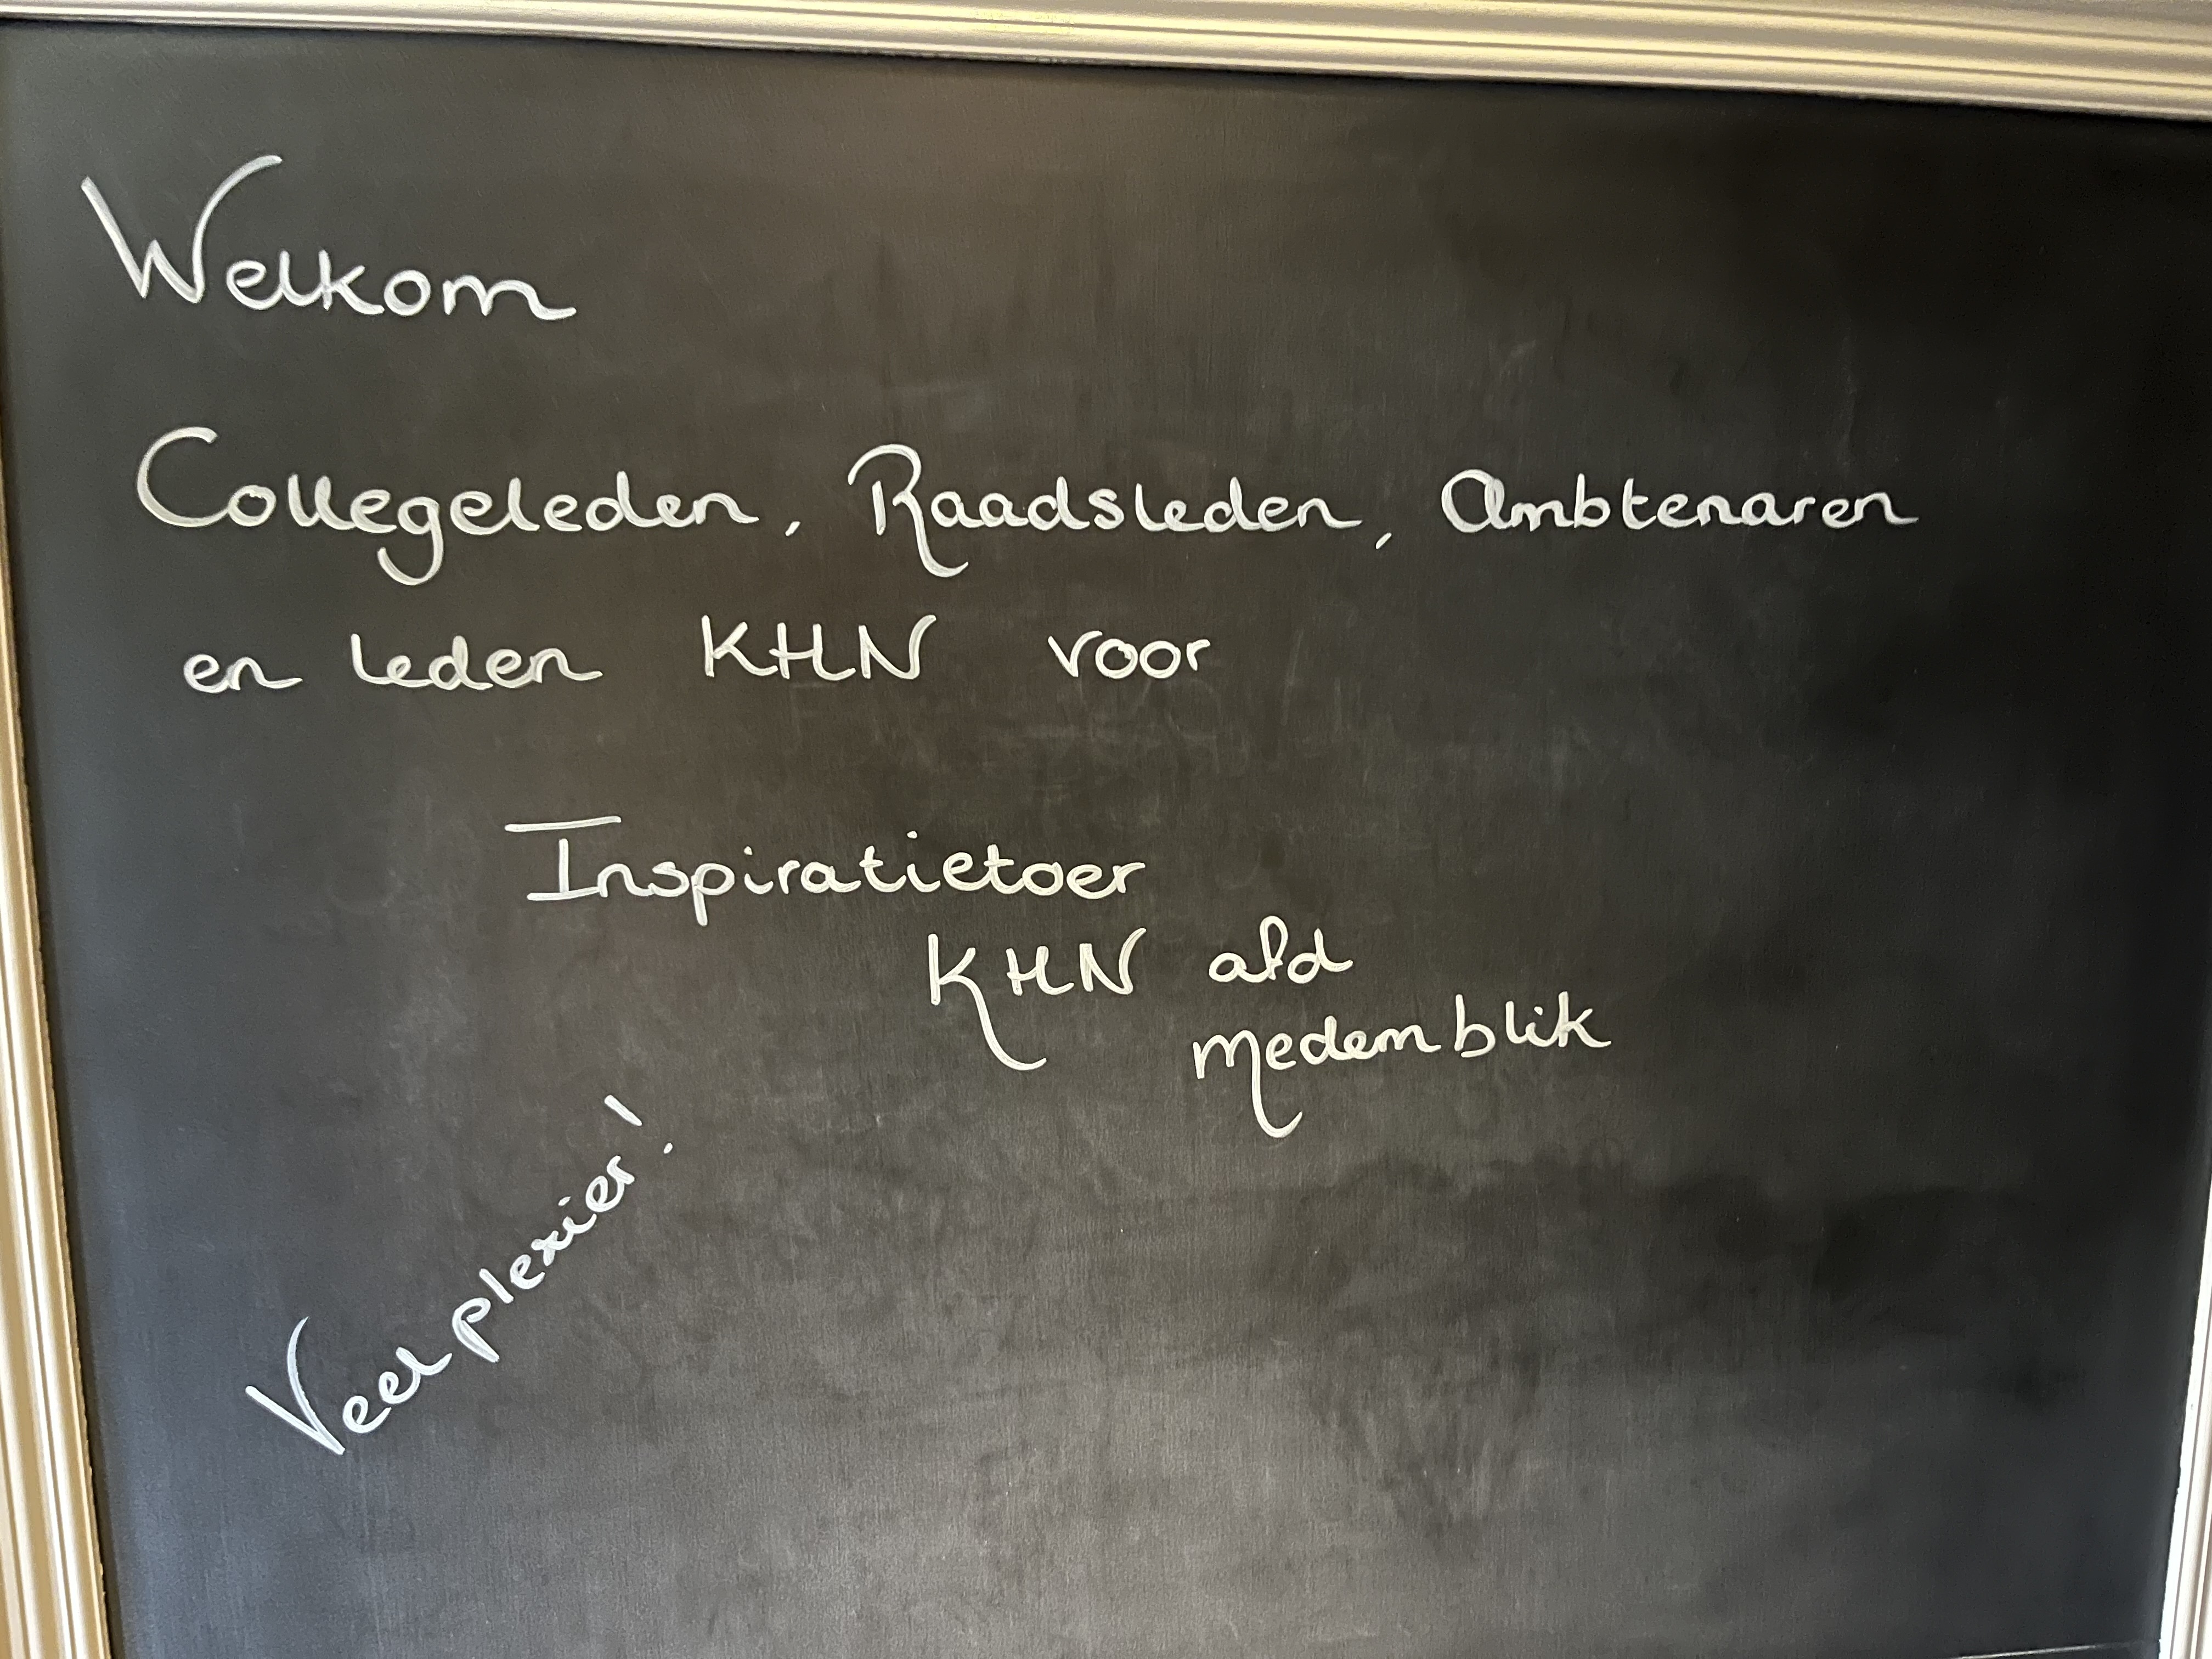 Welkom
Collegeleden, Raadsleden, Ambtenaren
en leden KHN voor
Inspiratietoer
KHN afd
Medemblik
Veel plezier!